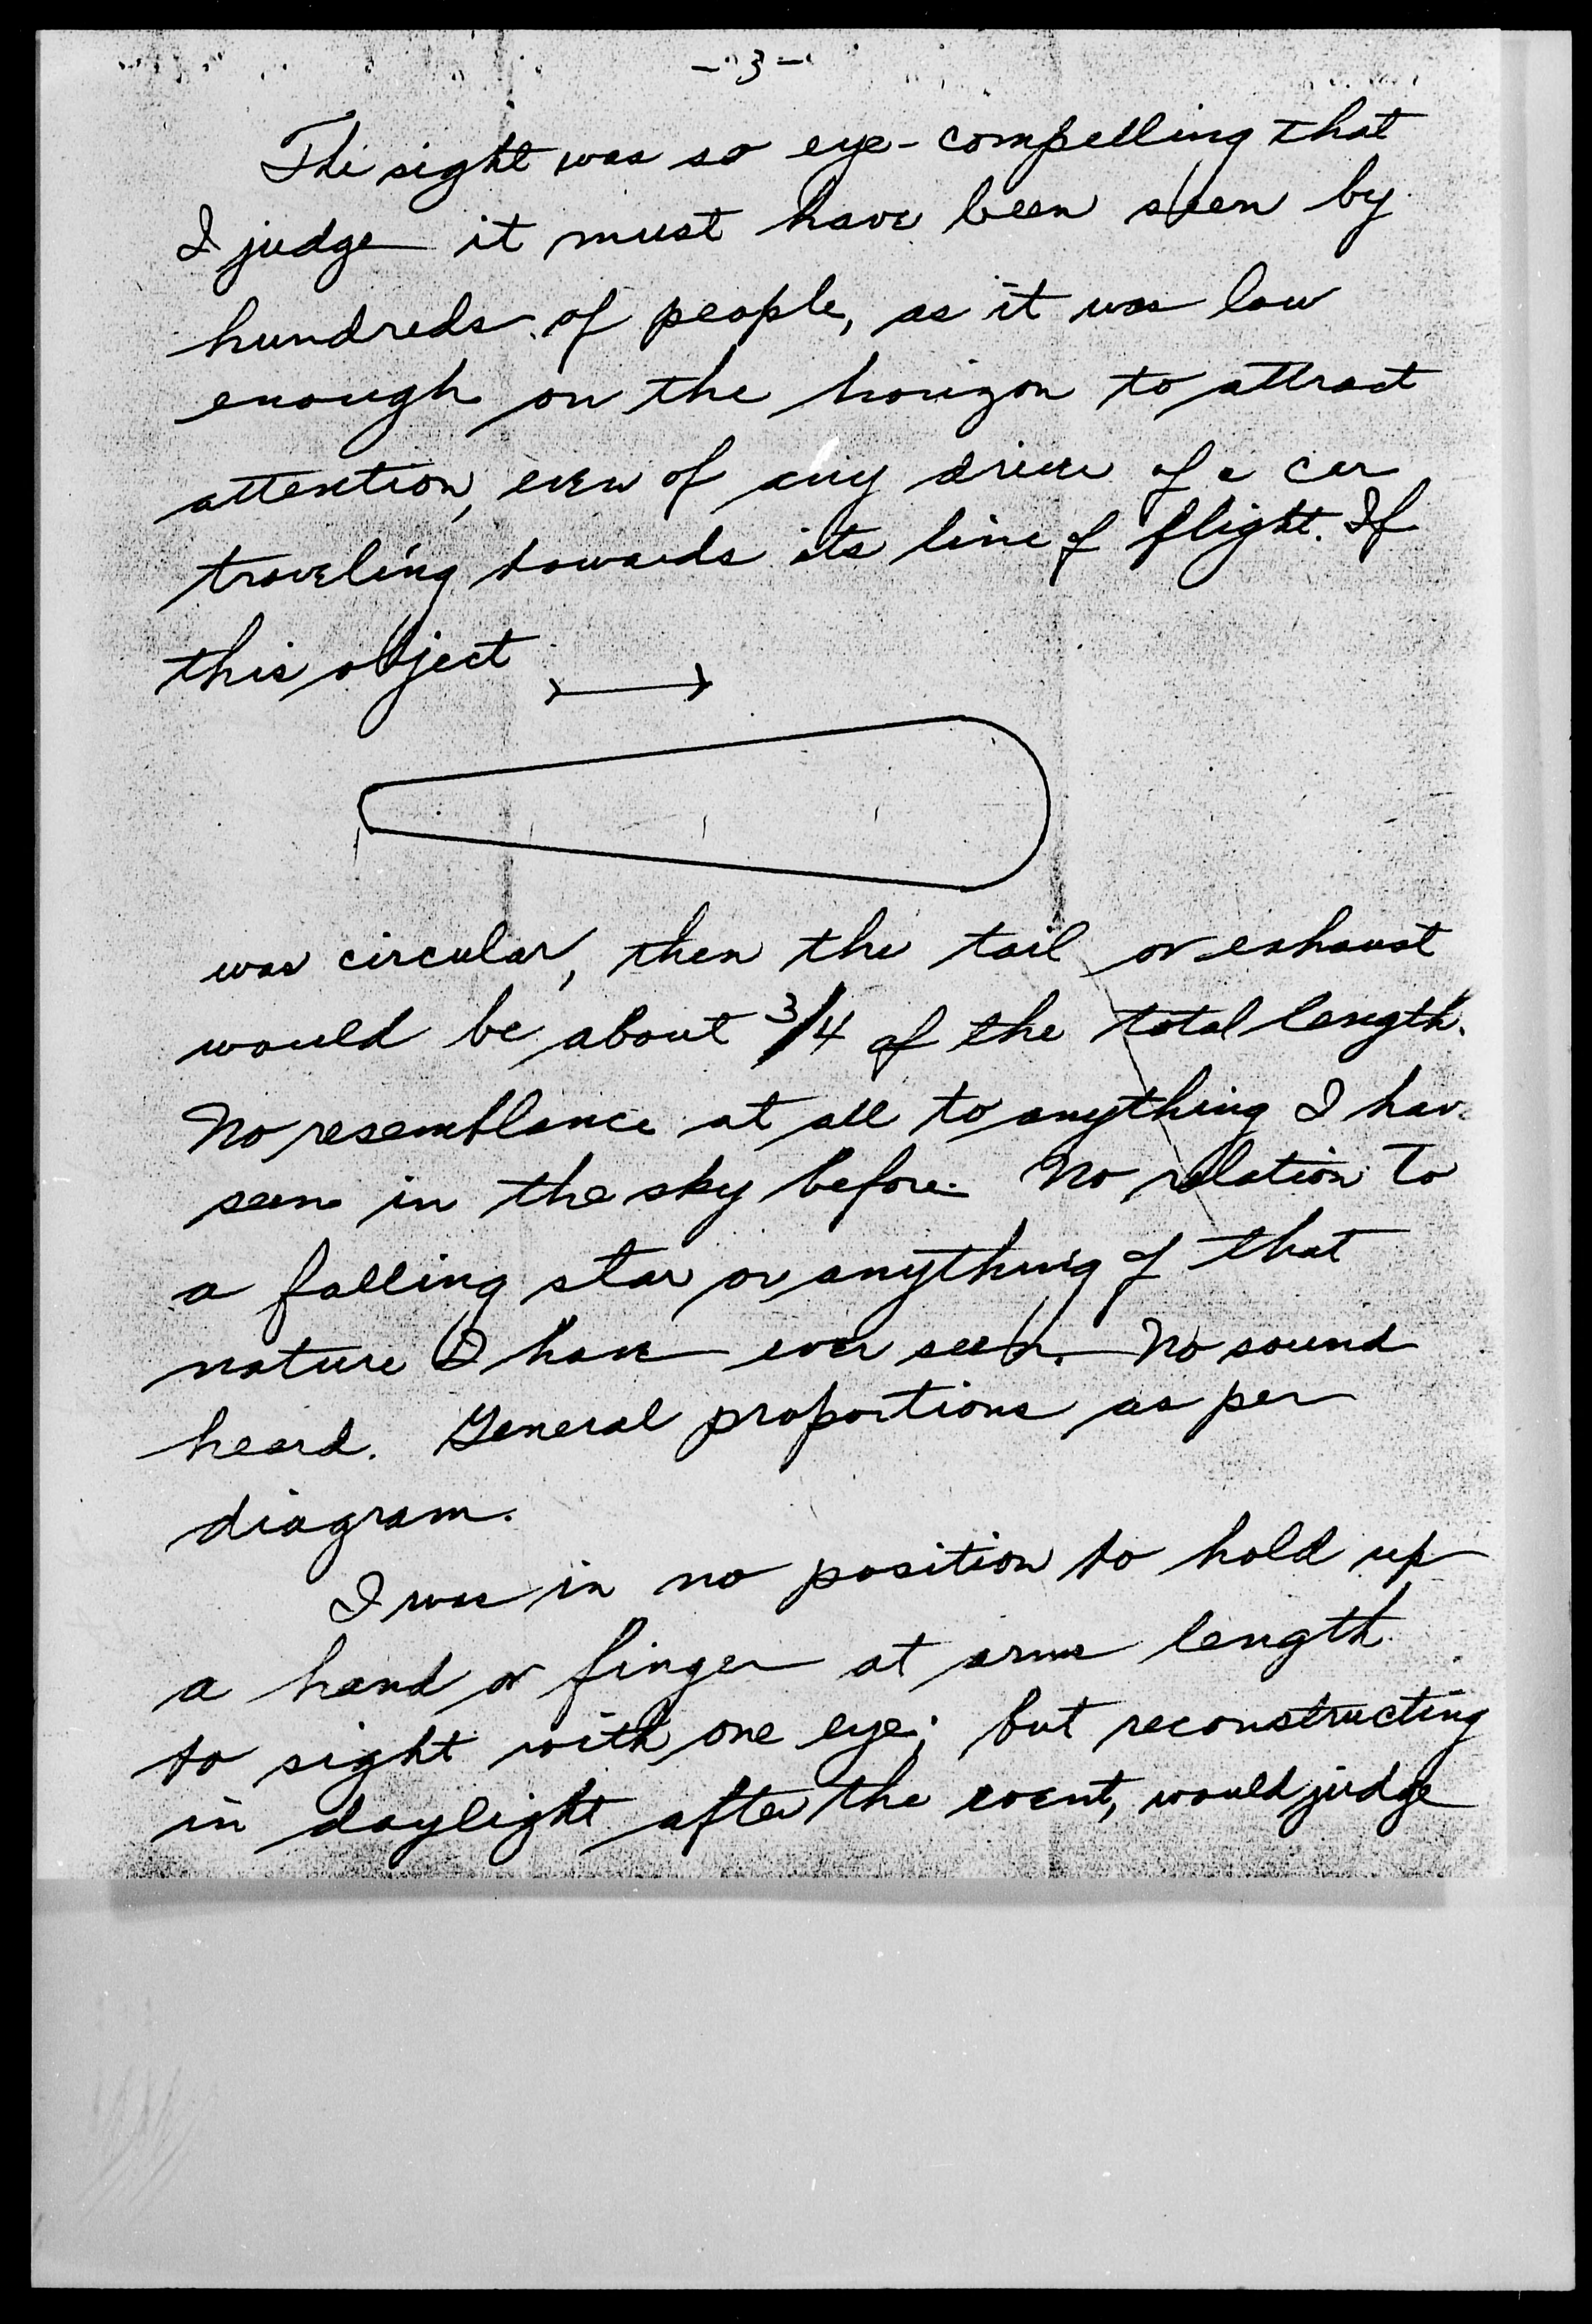 - 3 -
The sight was so eye-compelling that
I judge it must have been seen by
hundreds of people, as it was low
enough on the horizon to attract
attention, even of any driver of a car
traveling towards its line of flight. If
this object
was circular, then the tail or exhaust
would be about 3/4 of the total length.
No resemblance at all to anything I hav
seen in the sky before. No relation to
a falling star or anything of that
nature I have ever seen. No sound
heard. General proportions as per
diagram.
I was in no position to hold up
a hand or finger at arms length
to sight with one eye; but reconstructing
in daylight after the event, would judge